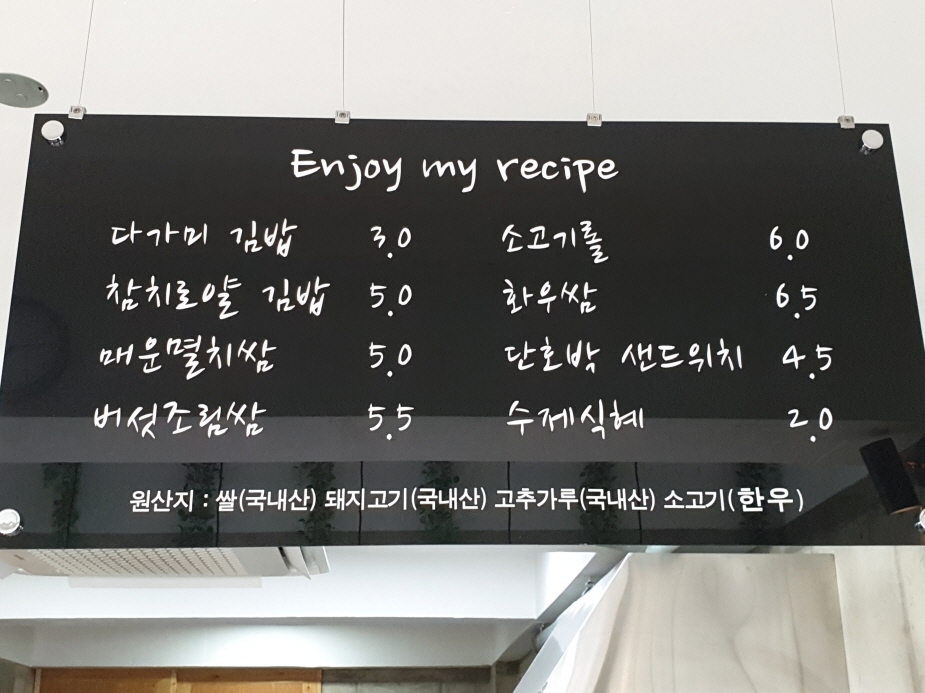 Enjoy my recipe
다가미 김밥 3.0 소고기롤 6.0
참치로얄 김밥 5.0 화우쌈 6.5
매운멸치쌈 5.0 단호박 샌드위치 4.5
버섯조림쌈 5.5 수제식혜 2.0
원산지 : 쌀(국내산) 돼지고기(국내산) 고추가루(국내산) 소고기(한우)